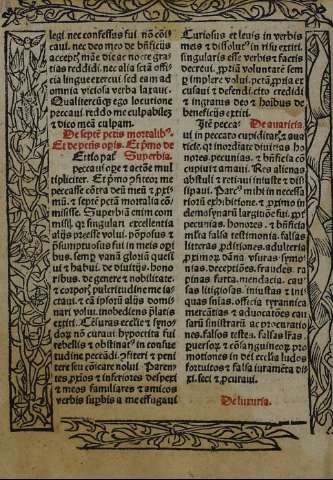 legi nec confessus fui nõ cõsi
caui. nec deo meo de bñficijs
acceptꝭ mãe die ac nocte gra
tias reddidi. nec alia scã offi
cia lingue exercui sed eam ad
omnia viciosa verba laxaui.
Qualitercũqꝫ ego locutione
peccaui. reddo me culpabilẽ
⁊ dico meã culpam.
De septẽ pctis mortalibꝰ.
Et de pctis opis. Et pͥmo de
Superbia.
peccaui ope ⁊ actõe mul
tipliciter. Et pͥmo cõfiteor me
peccasse cõtra deũ meũ ⁊ pxͥ
mũ. ⁊ septẽ pctã mortalia cõ
misisse. Superbia enim com
misi. qꝛ singularẽ excellentiã
alijs preesse volui. põposus ⁊
psumptuosus fui in meis opi
bus. semp vanã gloriã quesi
ui ⁊ habui. de diuitijs. hono
ribus. de genere ⁊ nobilitate
⁊ corporꝭ pulcritudine me ia
ctaui. ⁊ cã ipsorũ alijs domi
nari volui. inobediens platis
extiti. Ecturas ecclie ⁊ syno
dor̃ nõ curaui. hypocrita fui
rebellis ⁊ obstinatꝰ in consue
tudine peccãdi. cõfiteri ⁊ peni
tere seu cõicare nolui. Paren
tes pͥores ⁊ inferiores despexi
⁊ meos familiares ⁊ amicos
verbis supbis a me effugaui
Curiosus et leuis in verbis
meis ⁊ dissolutꝰ in risu extiti.
singularis esse verbis ⁊ factis
decreui. ppͥã voluntatẽ sem
per implere volui. pctã ppͥa ex
cusaui ⁊ defendi. cito credidi
⁊ ingratus deo ⁊ hoibus de
beneficijs extiti.
Itẽ pecca De auaricia.
ui in peccato cupiditatꝭ ⁊ aua
ricie. qꝛ inordinate diuitias ho
nores. pecunias. ⁊ bñficia cõ
cupiui ⁊ amaui. Res alienas
abstuli ⁊ retinui iniuste ⁊ dis
sipaui. Parcꝰ mihi in necessa
riorũ exhibitione. ⁊ pximo in
elemosynarũ largitiõe fui. ppͭ
pecunias. honores. ⁊ bñficia
multa falsa testimonia. falsas
litteras. pditiones. adulteria
pximor̃ dãna. vsuras. symo
nias. deceptiões. fraudes. ra
pinas. furta. mendacia. cau
sas litigiosas. iniustas ⁊ ini
quas. snias. officia tyrannica
mercatias ⁊ aduocatões cau
sarũ sinistrarũ. ac pcuratio
nes. falsos testes. falsas lr̃as.
puersor̃ ⁊ cõsanguineor̃ pro
motiones in dei ecclia ludos
fortuitos ⁊ falsa iuramẽta di
xi. feci ⁊ pcuraui.
De luxuria.